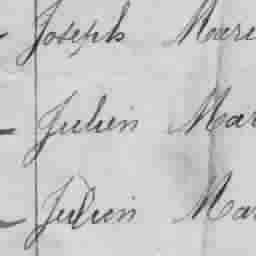 Joseph Mari
Julien Mar
Julien Mar